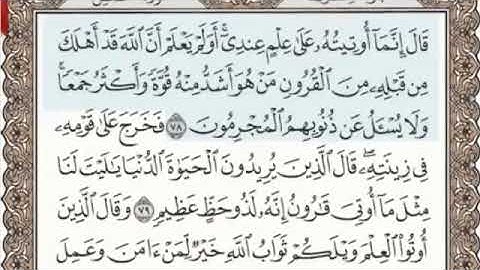 قَالَ إِنَّمَآ أُوتِيتُهُۥ عَلَىٰ عِلْمٍ عِندِىٓ ۚ أَوَلَمْ يَعْلَمْ أَنَّ ٱللَّهَ قَدْ أَهْلَكَ
مِن قَبْلِهِۦ مِنَ ٱلْقُرُونِ مَنْ هُوَ أَشَدُّ مِنْهُ قُوَّةً وَأَكْثَرُ جَمْعًا ۚ
وَلَا يُسْـَٔلُ عَن ذُنُوبِهِمُ ٱلْمُجْرِمُونَ ٧٨ فَخَرَجَ عَلَىٰ قَوْمِهِۦ
فِى زِينَتِهِۦ ۖ قَالَ ٱلَّذِينَ يُرِيدُونَ ٱلْحَيَوٰةَ ٱلدُّنْيَا يَـٰلَيْتَ لَنَا
مِثْلَ مَآ أُوتِىَ قَـٰرُونُ إِنَّهُۥ لَذُو حَظٍّ عَظِيمٍ ٧٩ وَقَالَ ٱلَّذِينَ
أُوتُوا۟ ٱلْعِلْمَ وَيْلَكُمْ ثَوَابُ ٱللَّهِ خَيْرٌ لِّمَنْ ءَامَنَ وَعَمِلَ